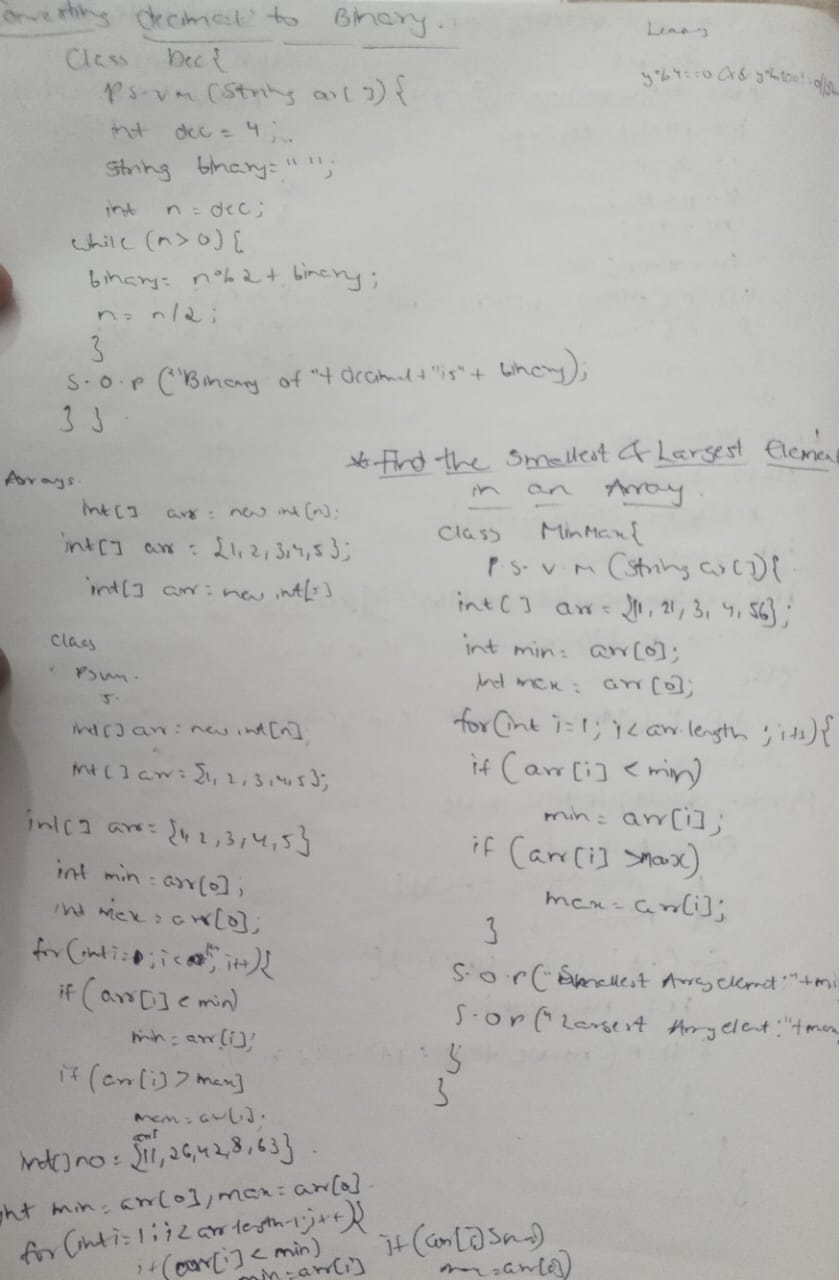 Converting decimal to Binary.
Class Dec {
P.S.v.m (String ar[ ]) {
int dec = 4;
String binary= " ";
int n = dec;
while (n>0) {
binary= n%2 + binary;
n = n/2;
}
S.O.P ("Binary of "+ decimal + "is" + binary);
} }
Arrays.
int[] arr = new int[n];
int[] arr = {1, 2, 3, 4, 5};
int[] arr = new int[5]
class
Psvm.
int[] arr = new int[n];
int[] arr = {1, 2, 3, 4, 5};
int[] arr = {4 2, 3, 4, 5}
int min = arr[0];
int max = arr[0];
for (int i= ; i< ; i++){
if (arr[i] < min)
min = arr[i];
if (arr[i] > max]
max = arr[i].
int[] no = {11, 26, 42, 8, 63}
int min = arr[0], max = arr[0].
for (int i=1; i< arr length-1; i++){
if (arr[i] < min)
min = arr[i]
if (arr[i] > max)
max = arr[i]
y%4==0 && y%100!=0
* Find the Smallest & Largest Element
in an Array.
Class MinMax{
P.S.v.m (String ar[]){
int[] arr = {11, 21, 3, 4, 56};
int min = arr[0];
int max = arr[0];
for(int i=1; i< arr.length ; i++){
if (arr[i] < min)
min = arr[i];
if (arr[i] >max)
max = arr[i];
}
S.O.P("Smallest Array element:"+mi
S.O.P("Largest Array elent:"+max
}
}